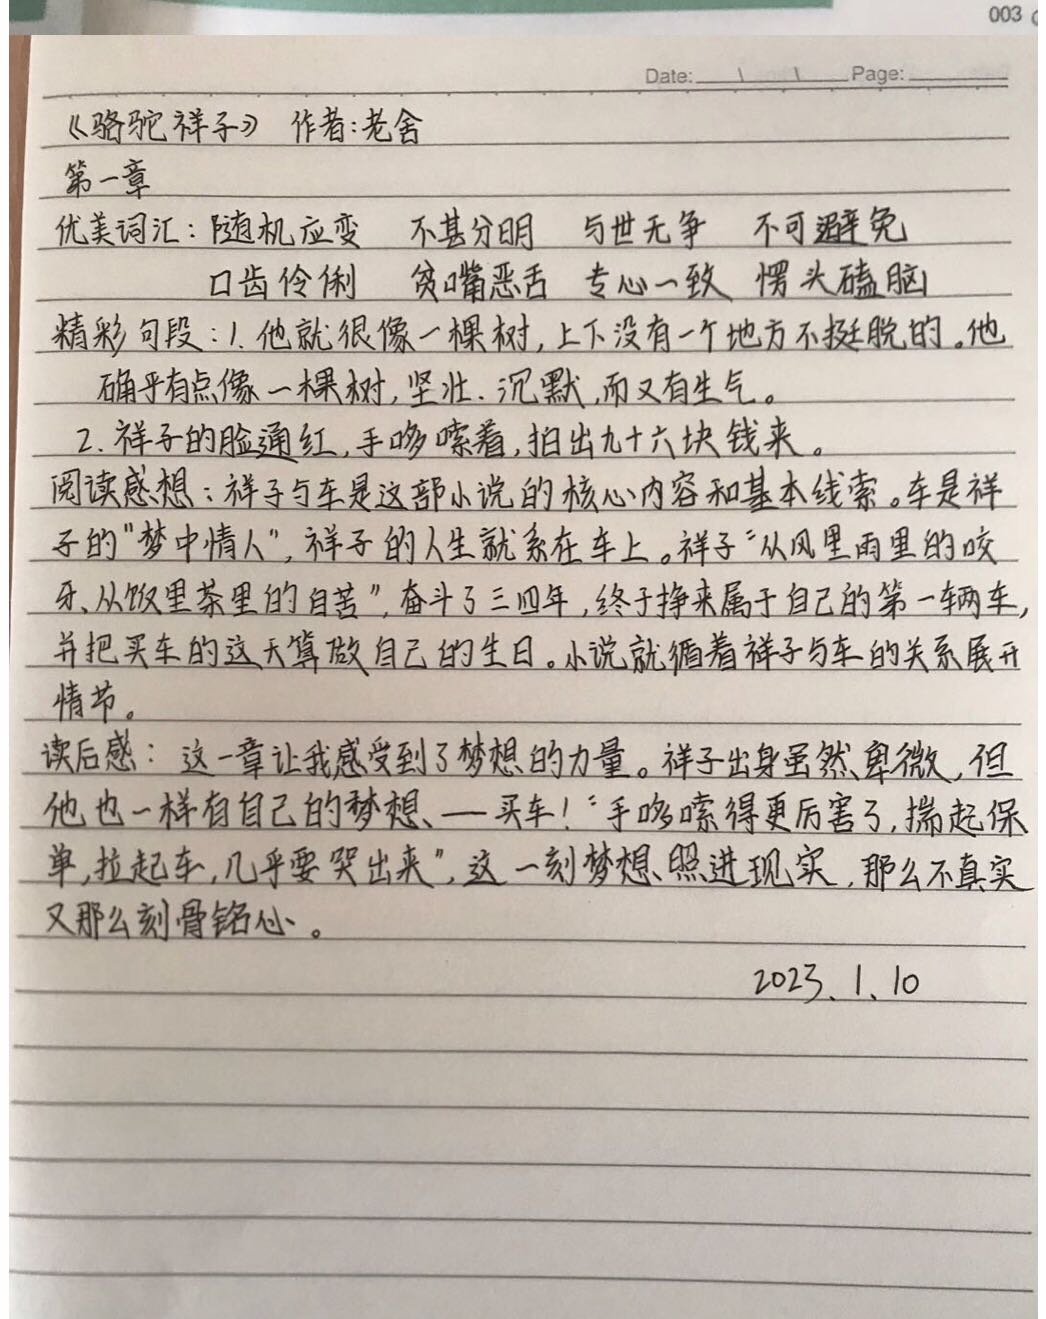 003
Date: Page:
《骆驼祥子》 作者:老舍
第一章
优美词汇:随机应变 不甚分明 与世无争 不可避免
口齿伶俐 贫嘴恶舌 专心一致 愣头磕脑
精彩句段:1.他就很像一棵树,上下没有一个地方不挺脱的。他
确乎有点像一棵树,坚壮、沉默,而又有生气。
2.祥子的脸通红,手哆嗦着,拍出九十六块钱来。
阅读感想:祥子与车是这部小说的核心内容和基本线索。车是祥
子的"梦中情人",祥子的人生就系在车上。祥子"从风里雨里的咬
牙、从饭里茶里的自苦",奋斗了三四年,终于挣来属于自己的第一辆车,
并把买车的这天算做自己的生日。小说就循着祥子与车的关系展开
情节。
读后感:这一章让我感受到了梦想的力量。祥子出身虽然卑微,但
他也一样有自己的梦想——买车!"手哆嗦得更厉害了,揣起保
单,拉起车,几乎要哭出来",这一刻梦想照进现实,那么不真实
又那么刻骨铭心。
2023、1、10